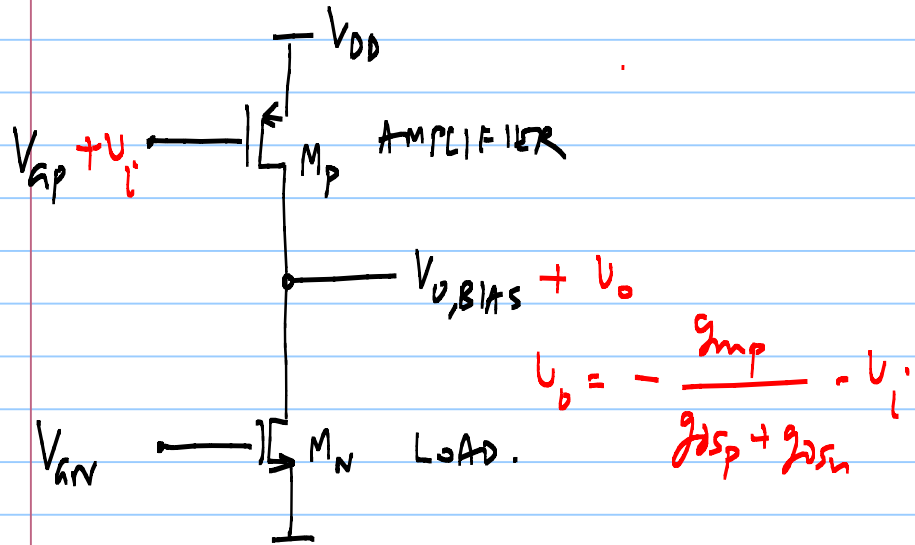 V_DD
V_GP + v_i
M_P AMPLIFIER
V_O,BIAS + v_o
v_o = - g_mp / (g_dsp + g_dsn) · v_i
V_GN
M_N LOAD.